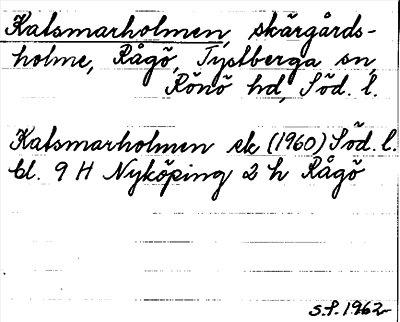 Katsmarholmen, skärgårds-
holme, Rågö, Tystberga sn,
Rönö hd, Söd. l.
Katsmarholmen ek (1960) Söd. l.
bl. 9 H Nyköping 2 h Rågö
s.f. 1962